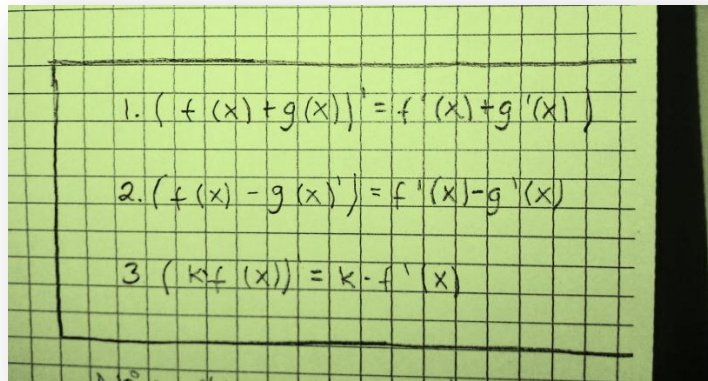 1. (f(x)+g(x))'=f'(x)+g'(x))
2. (f(x)-g(x)')=f'(x)-g'(x)
3 (k·f(x))'=k·f'(x)